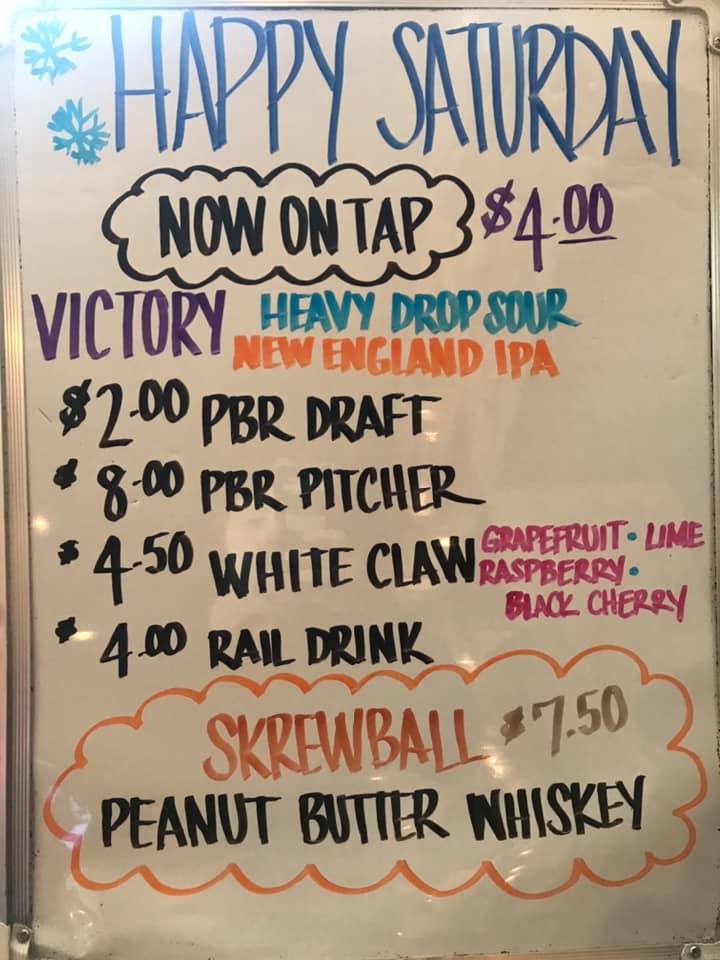 HAPPY SATURDAY
NOW ON TAP $4.00
VICTORY HEAVY DROP SOUR
NEW ENGLAND IPA
$2.00 PBR DRAFT
$8.00 PBR PITCHER
$4.50 WHITE CLAW GRAPEFRUIT • LIME
RASPBERRY •
BLACK CHERRY
$4.00 RAIL DRINK
SKREWBALL $7.50
PEANUT BUTTER WHISKEY